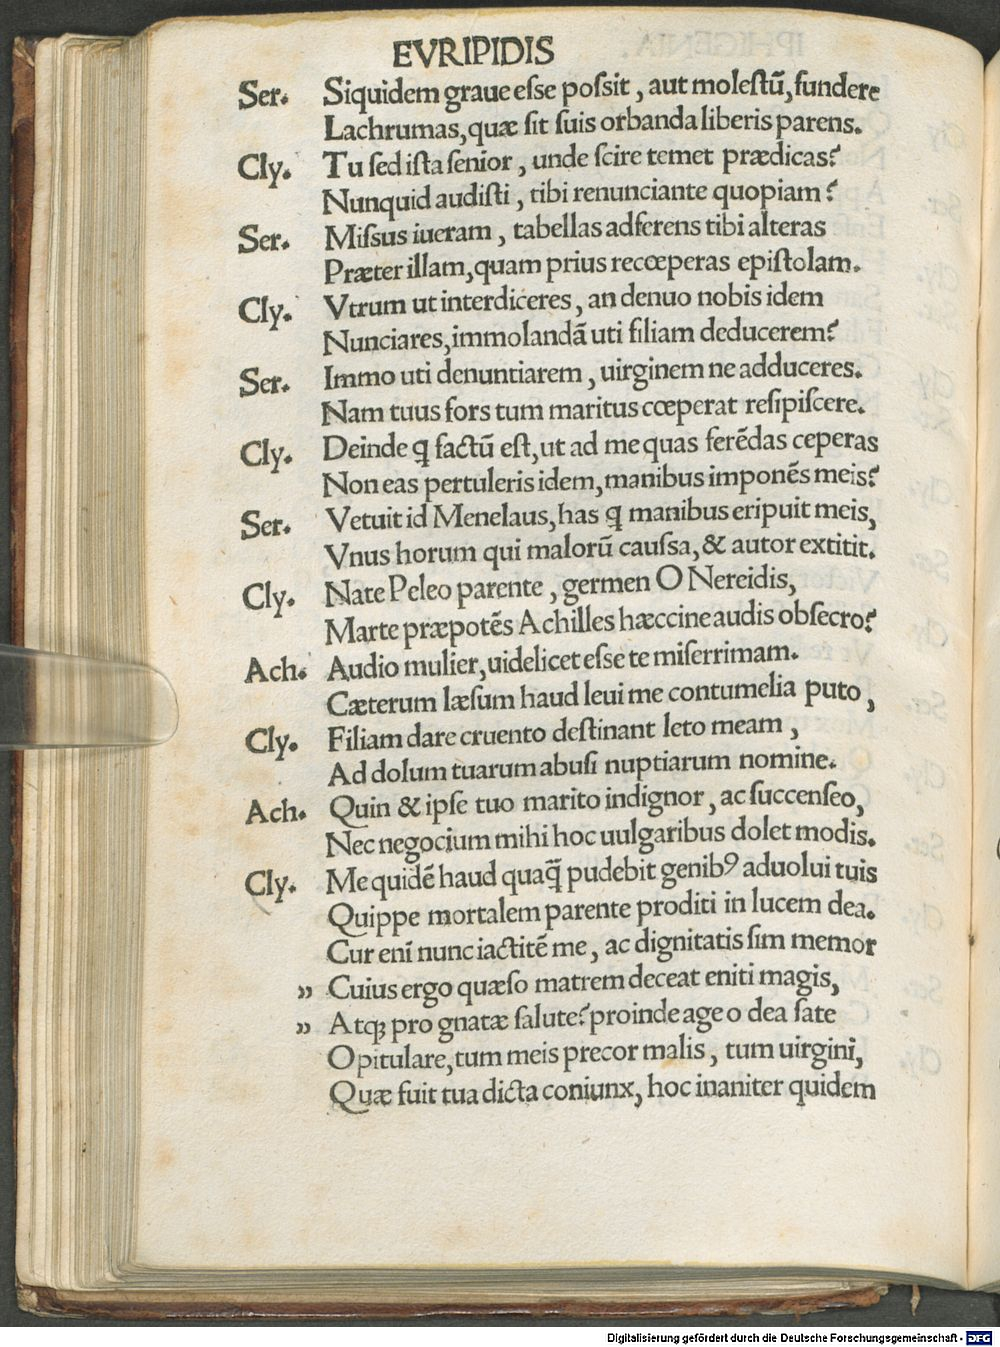 EVRIPIDIS
Ser. Siquidem graue eſse poſsit, aut moleſtū, fundere
Lachrumas, quæ ſit ſuis orbanda liberis parens.
Cly. Tu ſed iſta ſenior, unde ſcire temet prædicas?
Nunquid audiſti, tibi renunciante quopiam?
Ser. Miſsus iueram, tabellas adferens tibi alteras
Præter illam, quam prius recœperas epiſtolam.
Cly. Vtrum ut interdiceres, an denuo nobis idem
Nunciares, immolandā uti filiam deducerem?
Ser. Immo uti denuntiarem, uirginem ne adduceres.
Nam tuus fors tum maritus cœperat reſipiſcere.
Cly. Deinde ꝗ factū eſt, ut ad me quas ferēdas ceperas
Non eas pertuleris idem, manibus imponēs meis?
Ser. Vetuit id Menelaus, has ꝗ manibus eripuit meis,
Vnus horum qui malorū cauſsa, & autor extitit.
Cly. Nate Peleo parente, germen O Nereidis,
Marte præpotēs Achilles hæccine audis obſecro?
Ach. Audio mulier, uidelicet eſse te miſerrimam.
Cæterum læſum haud leui me contumelia puto,
Cly. Filiam dare cruento deſtinant leto meam,
Ad dolum tuarum abuſi nuptiarum nomine.
Ach. Quin & ipſe tuo marito indignor, ac ſuccenſeo,
Nec negocium mihi hoc uulgaribus dolet modis.
Cly. Me quidē haud quaꝗ̄ pudebit genibꝰ aduolui tuis
Quippe mortalem parente proditi in lucem dea.
Cur enī nunc iactitē me, ac dignitatis ſim memor
„ Cuius ergo quæſo matrem deceat eniti magis,
„ Atqꝫ pro gnatæ ſalute? proinde age o dea ſate
Opitulare, tum meis precor malis, tum uirgini,
Quæ fuit tua dicta coniunx, hoc inaniter quidem
Digitalisierung gefördert durch die Deutsche Forschungsgemeinschaft - DFG